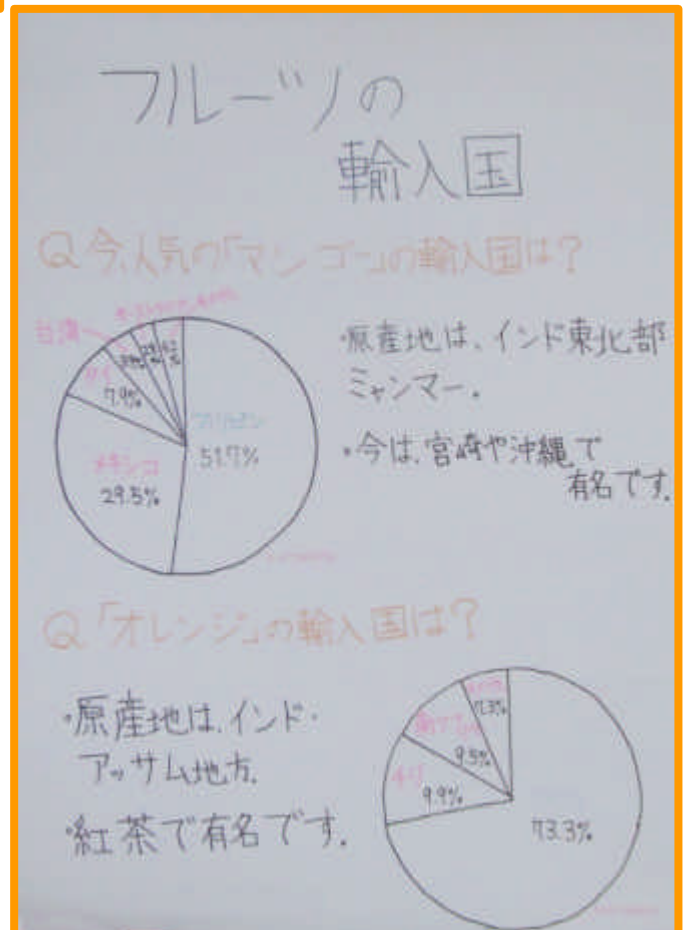 フルーツの
輸入国
Q 今、人気の「マンゴー」の輸入国は？
台湾
タイ
7.9%
メキシコ
29.5%
フィリピン
51.7%
・原産地は、インド東北部
ミャンマー。
・今は、宮崎や沖縄で
有名です。
Q 「オレンジ」の輸入国は？
・原産地は、インド・
アッサム地方。
・紅茶で有名です。
7.3%
南アフリカ
9.5%
チリ
9.9%
73.3%